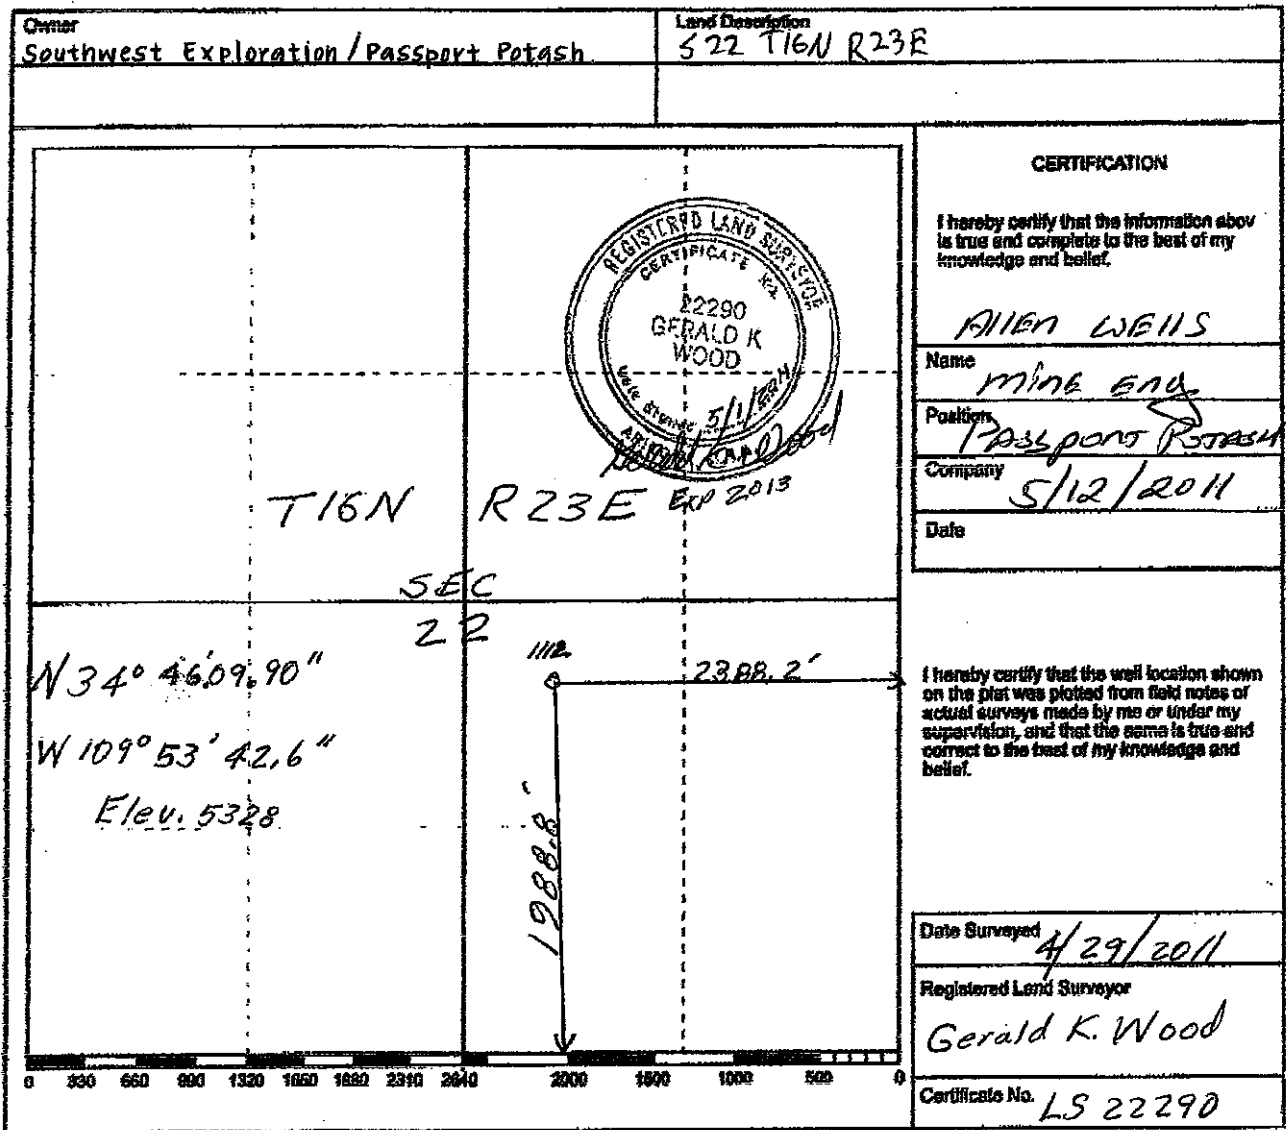 Owner
Southwest Exploration / Passport Potash
Land Description
S 22 T16N R23E
REGISTERED LAND SURVEYOR
CERTIFICATE No.
22290
GERALD K
WOOD
5/1/2011
EXP 2013
T16N R23E
SEC
22
N 34° 46' 09.90"
W 109° 53' 42.6"
Elev. 5328
1112
2388.2'
1988.8'
0 330 660 990 1320 1650 1980 2310 2640 2000 1500 1000 500 0
CERTIFICATION
I hereby certify that the information abov
is true and complete to the best of my
knowledge and belief.
Allen Wells
Name
Mine Eng
Position
Passport Potash
Company
5/12/2011
Date
I hereby certify that the well location shown
on the plat was plotted from field notes of
actual surveys made by me or under my
supervision, and that the same is true and
correct to the best of my knowledge and
belief.
Date Surveyed 4/29/2011
Registered Land Surveyor
Gerald K. Wood
Certificate No. LS 22290